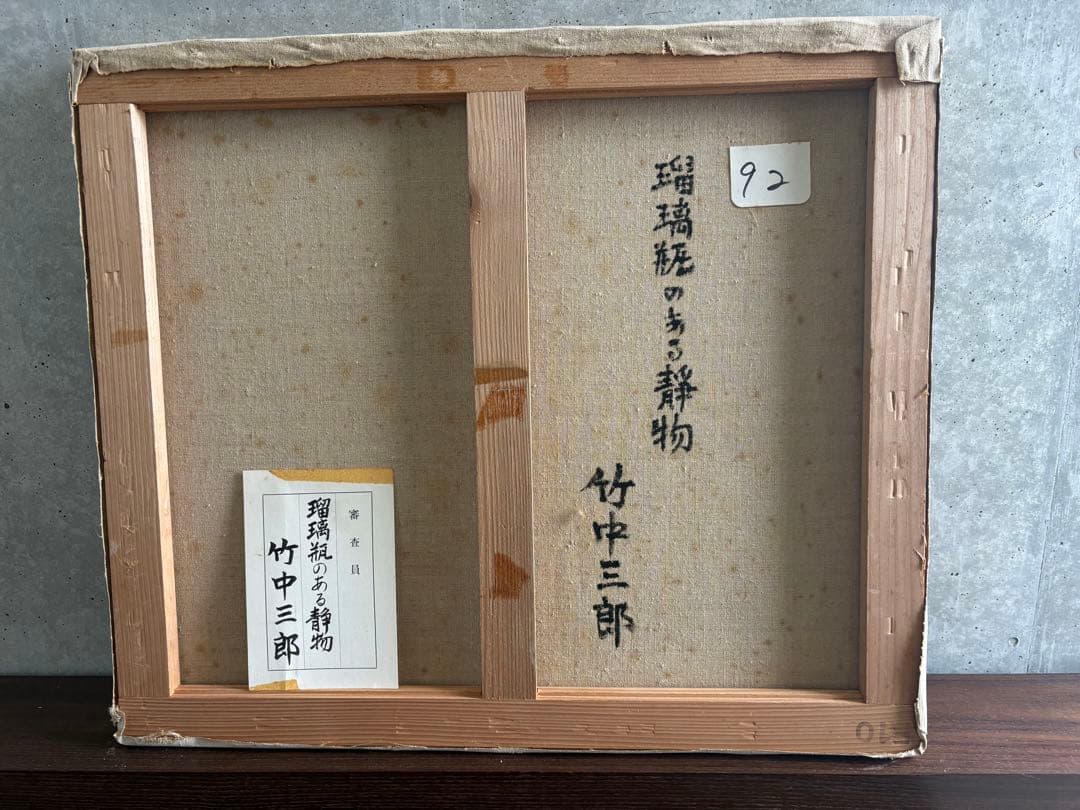 92
瑠璃瓶のある靜物
竹中三郎
審査員
瑠璃瓶のある静物
竹中三郎